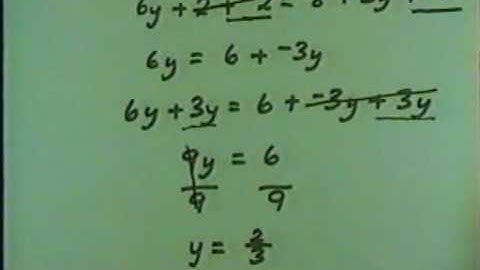 6y + 2 + ⁻2 =
6y = 6 + ⁻3y
6y + 3y = 6 + ⁻3y + 3y
9y = 6
9 9
y = 2/3